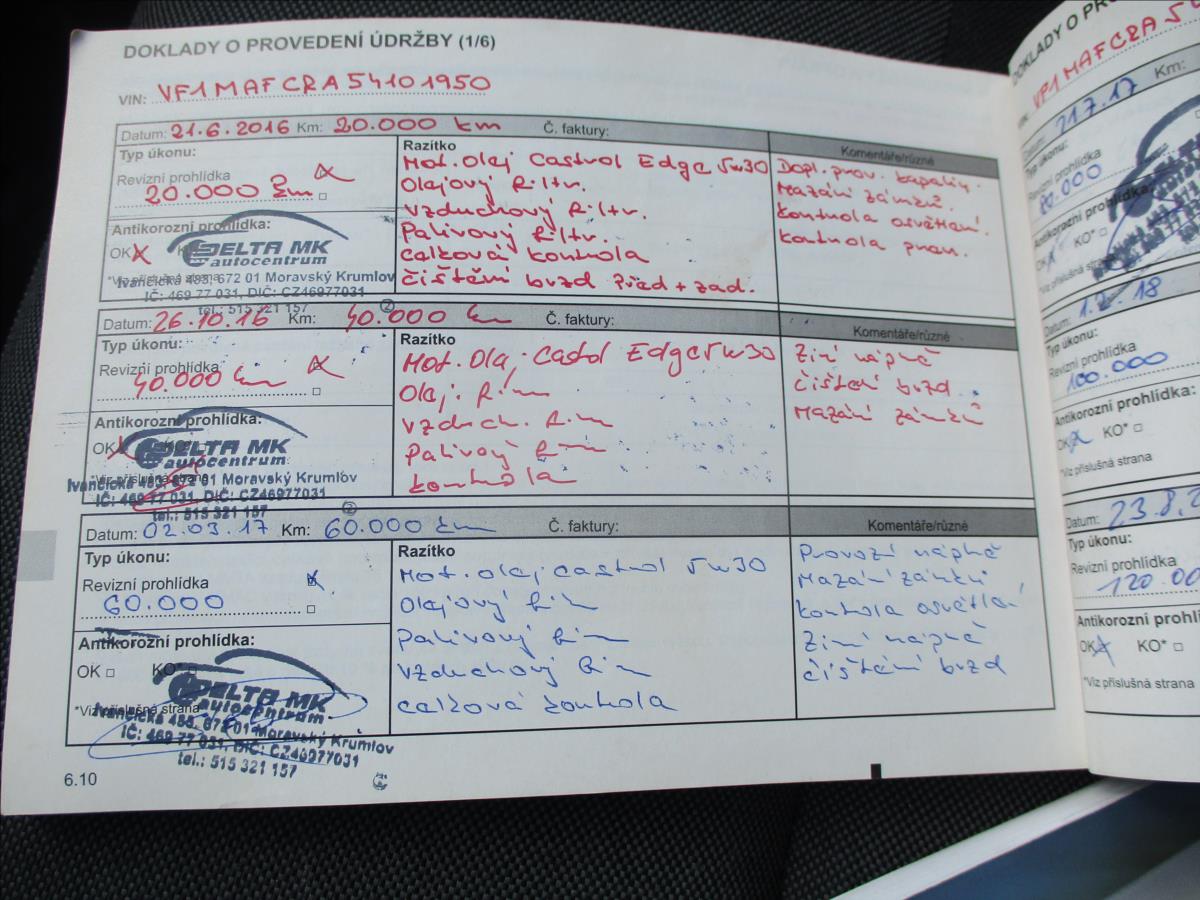 DOKLADY O PROVEDENÍ ÚDRŽBY (1/6)
VIN: VF1MAFCRA54101950
Datum: 21.6.2016 Km: 20.000 km Č. faktury:
Typ úkonu:
Revizní prohlídka
20.000 km
Antikorozní prohlídka:
OK
DELTA MK
autocentrum
*Viz příslušná strana
Ivančická 483, 672 01 Moravský Krumlov
IČ: 469 77 031, DIČ: CZ46977031
tel.: 515 321 157
Razítko
Mot. olej Castrol Edge 5w30
Olajový filtr.
Vzduchový filtr.
Palivový filtr.
Calková kontrola
čištění brzd Před + zad.
Komentáře/různé
Dopl. prov. kapalin.
Mazání zámků.
kontrola osvětlání.
kontrola pnau.
Datum: 26.10.16 Km: 40.000 km Č. faktury:
Typ úkonu:
Revizní prohlídka
40.000 km
Antikorozní prohlídka:
OK
DELTA MK
autocentrum
*Viz příslušná strana
Ivančická 483, 672 01 Moravský Krumlov
IČ: 469 77 031, DIČ: CZ46977031
tel.: 515 321 157
Razítko
Mot. Olaj. Edge 5w30
Olaj.
Vzduch.
Palivový
kontrola
Komentáře/různé
Zimí náplně
čištění brzd
Mazání zámků
Datum: 02.03.17 Km: 60.000 km Č. faktury:
Typ úkonu:
Revizní prohlídka
60.000
Antikorozní prohlídka:
OK KO*
DELTA MK
autocentrum
*Viz příslušná strana
Ivančická 483, 672 01 Moravský Krumlov
IČ: 469 77 031, DIČ: CZ46977031
tel.: 515 321 157
Razítko
Mot. olej castrol 5w30
Olajový
Palivový
Vzduchový
calková kontrola
Komentáře/různé
Provozí náplně
Mazání zámků
kontrola osvětlání
Zimí náplně
čištění brzd
6.10
DOKLADY O
VF1MAFCRA5
21.7.17 Km:
Typ úkonu:
Revizní prohlídka
80.000
Antikorozní
KO*
1.2.18
Typ úkonu:
Revizní prohlídka
100.000
Antikorozní prohlídka:
OK KO*
*Viz příslušná strana
Datum: 23.8.
Typ úkonu:
Revizní prohlídka
Antikorozní
OK KO*
*Viz příslušná strana